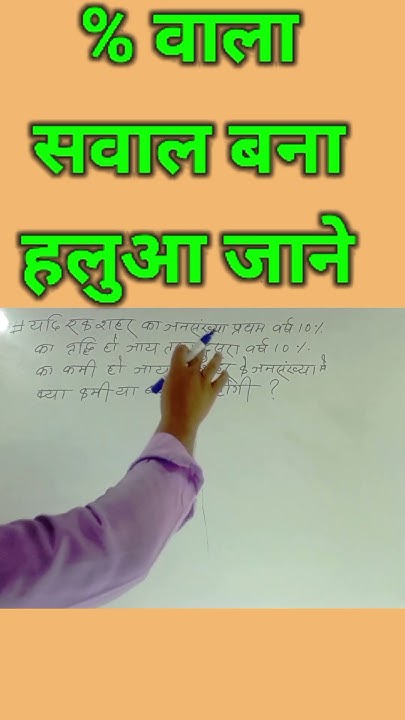 % वाला
सवाल बना
हलुआ जाने
# यदि एक शहर का जनसंख्या प्रथम वर्ष 10%
का वृद्धि हो जाय दुसरा वर्ष 10%
का कमी हो जाय के जनसंख्या में
क्या कमी या होगी ?